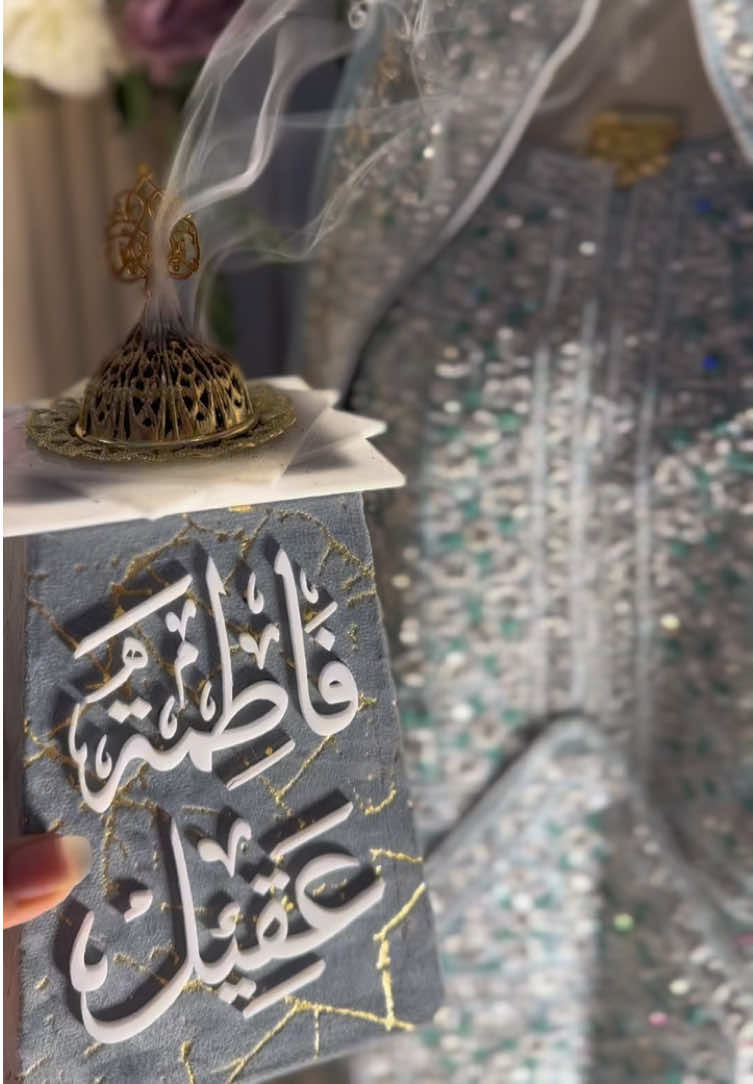 فَاطِمَةُ
عَقِيل